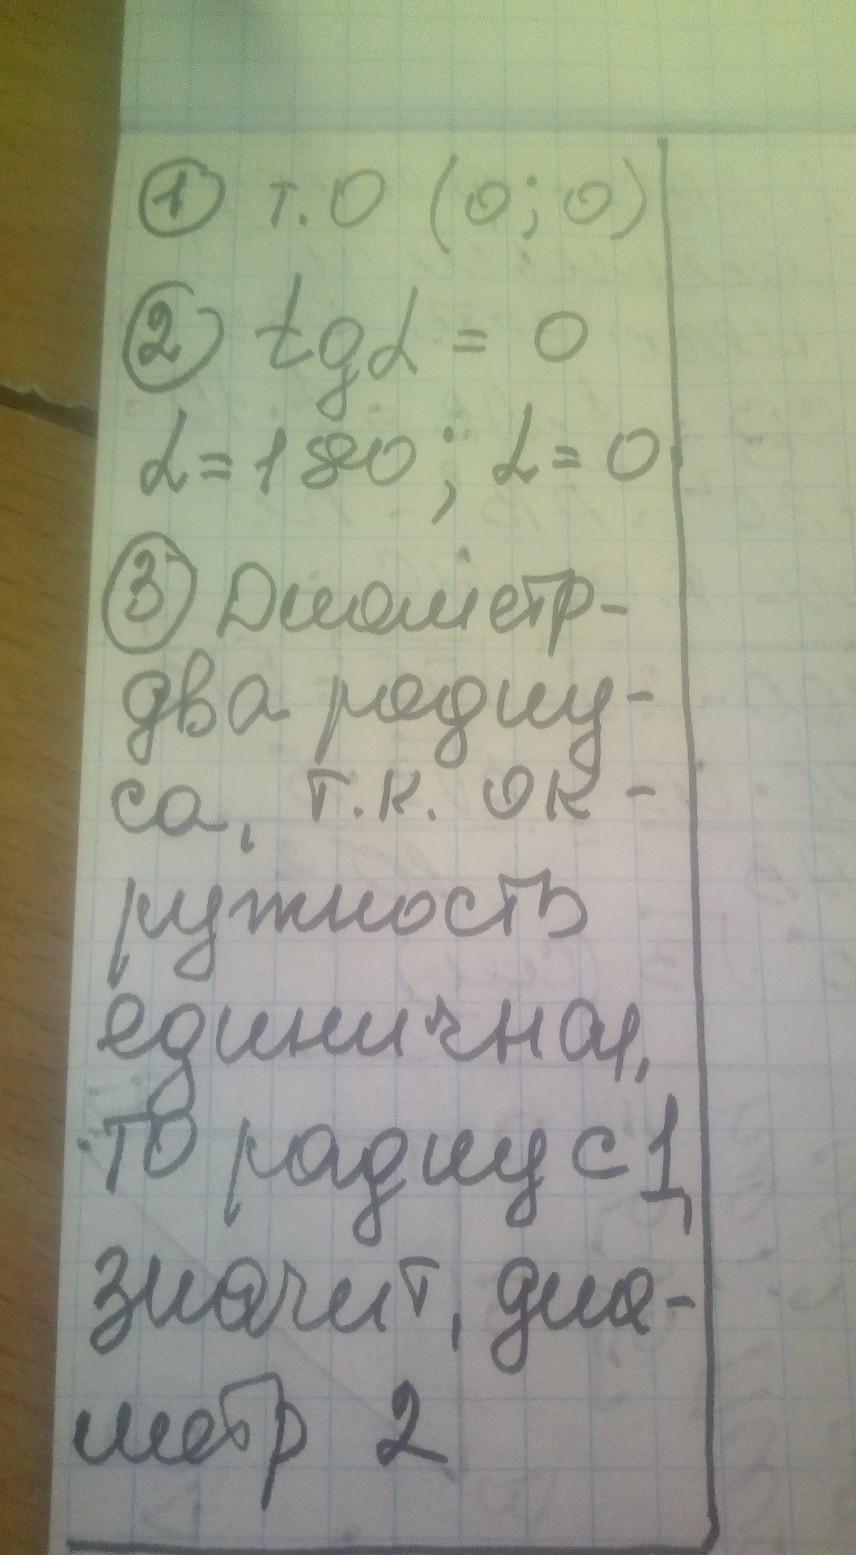 ① т.О (0; 0)
② tgα = 0
α=180; α=0
③ Диаметр-
два радиу-
са, т.к. ок-
ружность
единичная,
то радиус 1,
значит, диа-
метр 2